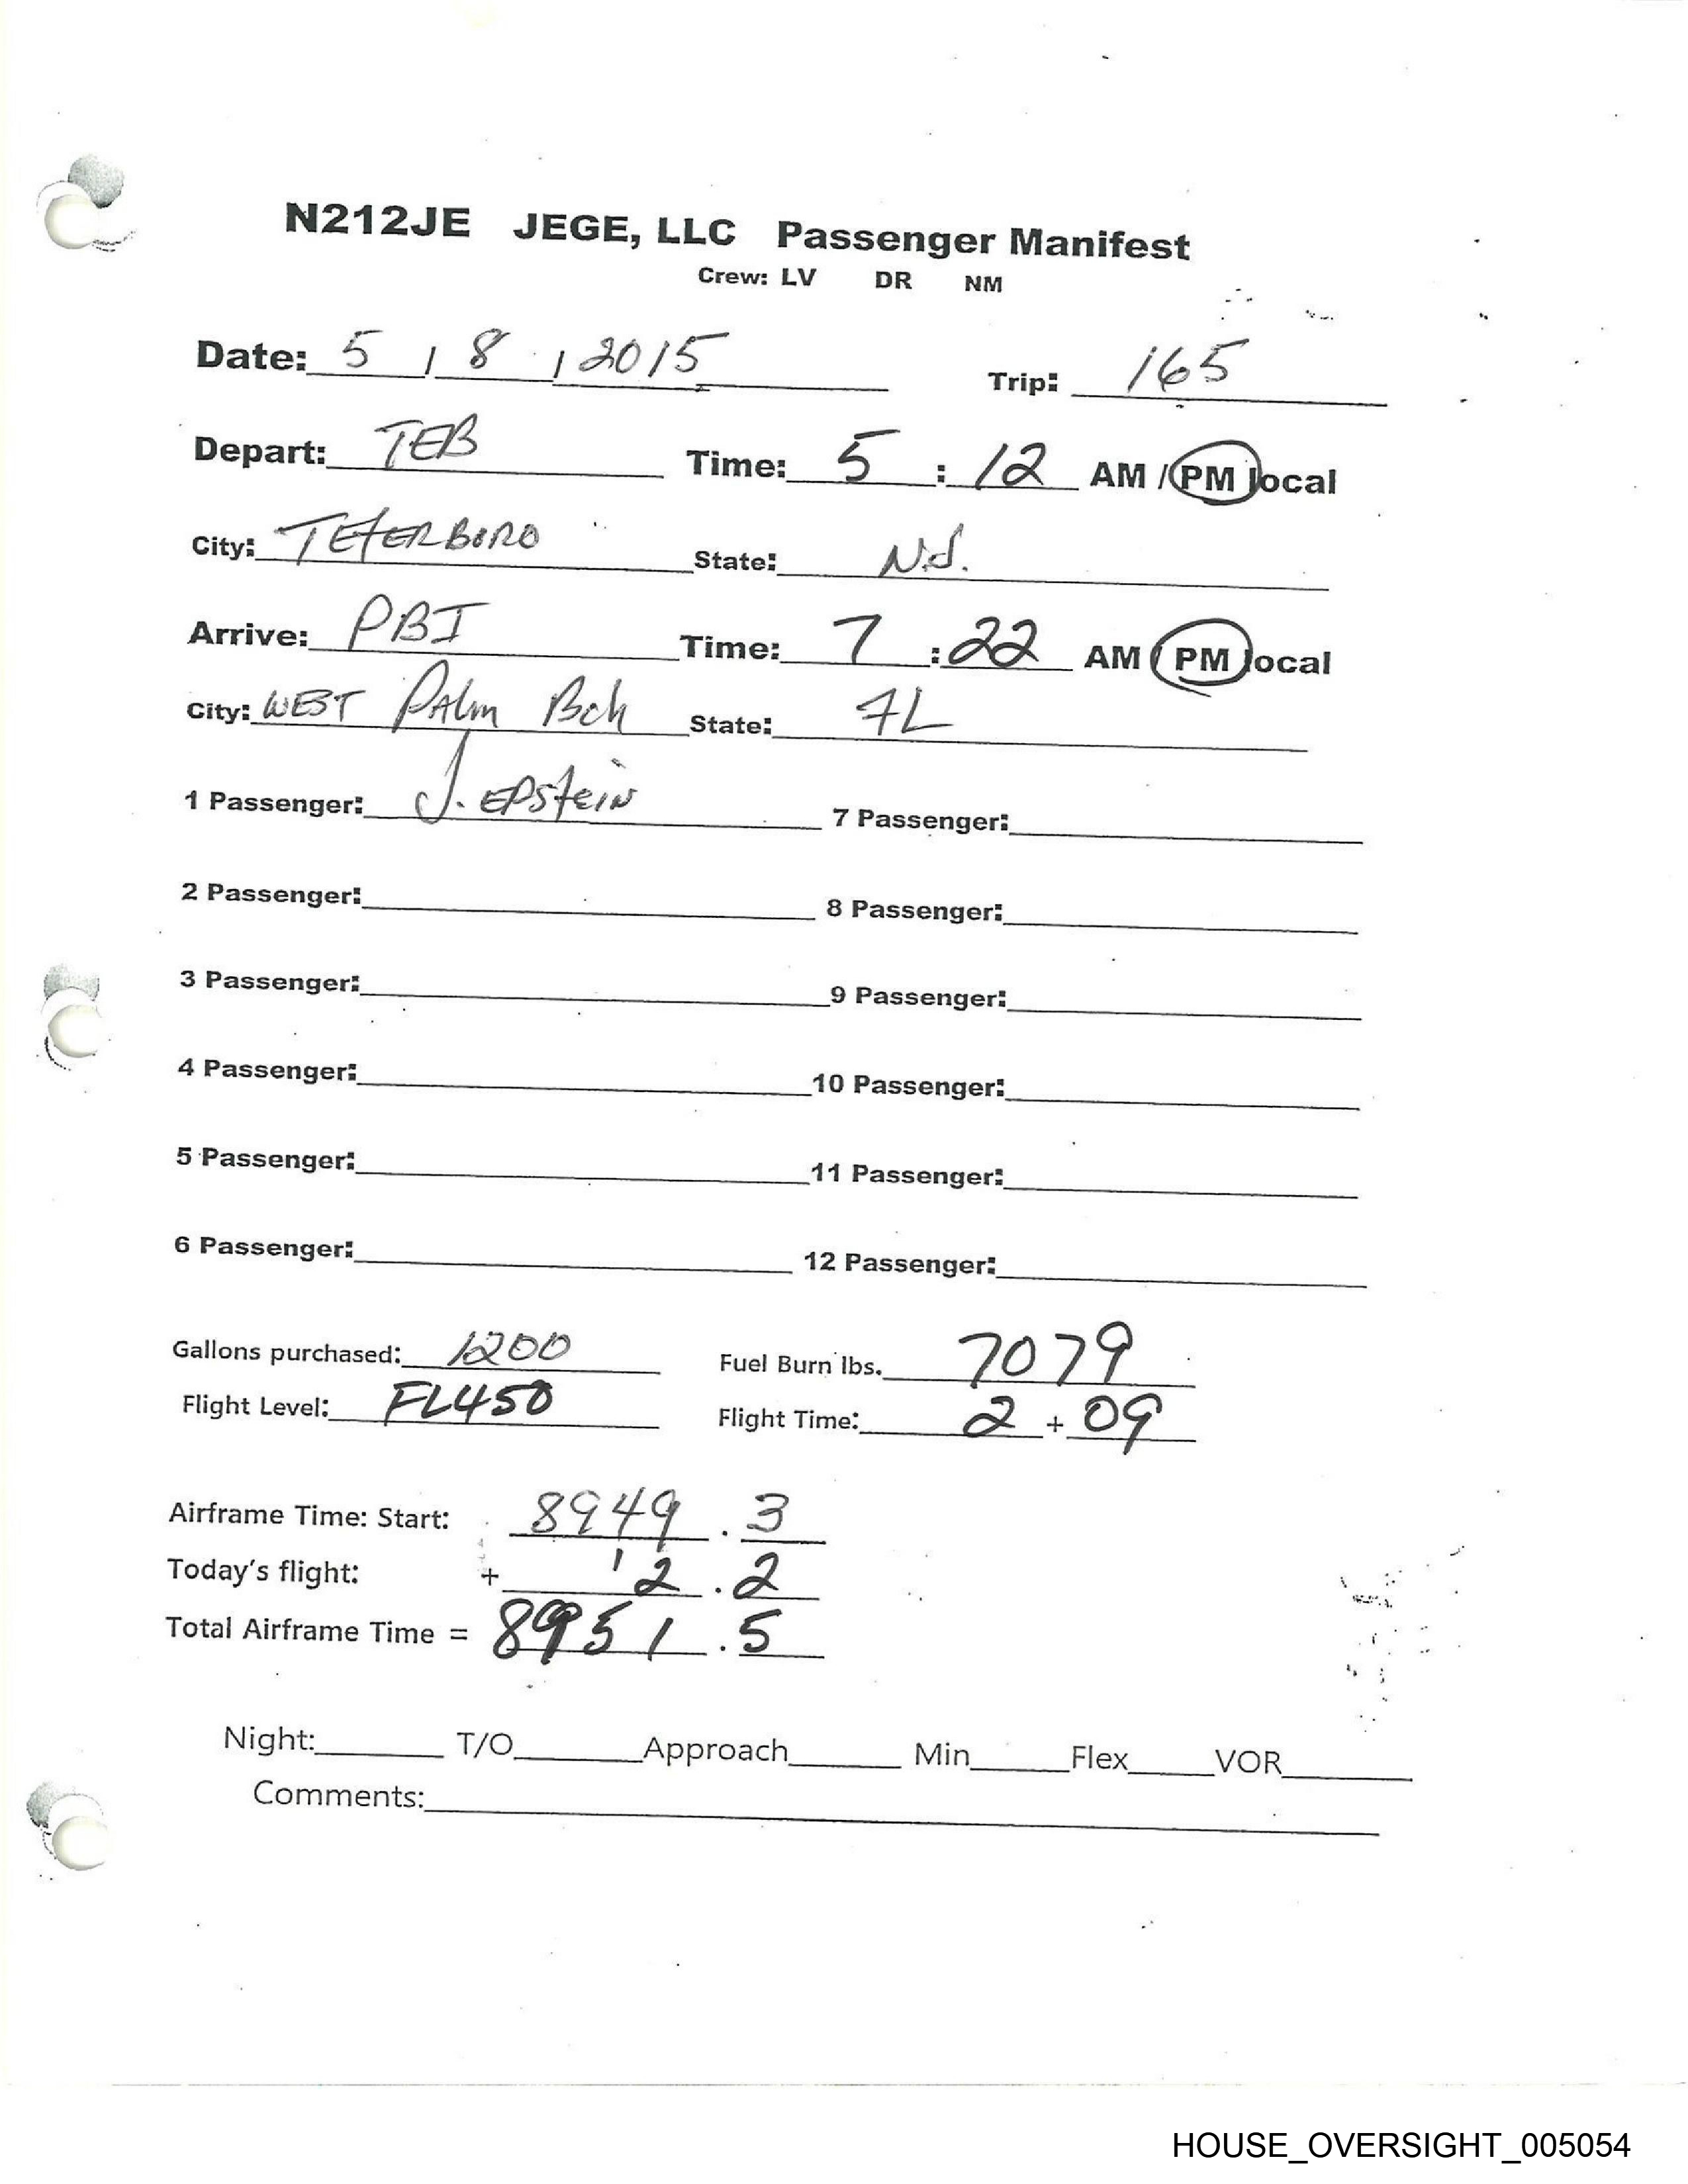 N212JE JEGE, LLC Passenger Manifest
Crew: LV DR NM
Date: 5 / 8 / 2015 Trip: 165
Depart: TEB Time: 5 : 12 AM / PM local
City: TETERBORO State: N.J.
Arrive: PBI Time: 7 : 22 AM / PM local
City: WEST PAlm Bch State: FL
1 Passenger: J. EPstein 7 Passenger:
2 Passenger: 8 Passenger:
3 Passenger: 9 Passenger:
4 Passenger: 10 Passenger:
5 Passenger: 11 Passenger:
6 Passenger: 12 Passenger:
Gallons purchased: 1200 Fuel Burn lbs. 7079
Flight Level: FL450 Flight Time: 2 + 09
Airframe Time: Start: 8949 . 3
Today's flight: + 2 . 2
Total Airframe Time = 8951 . 5
Night: T/O Approach Min Flex VOR
Comments:
HOUSE_OVERSIGHT_005054